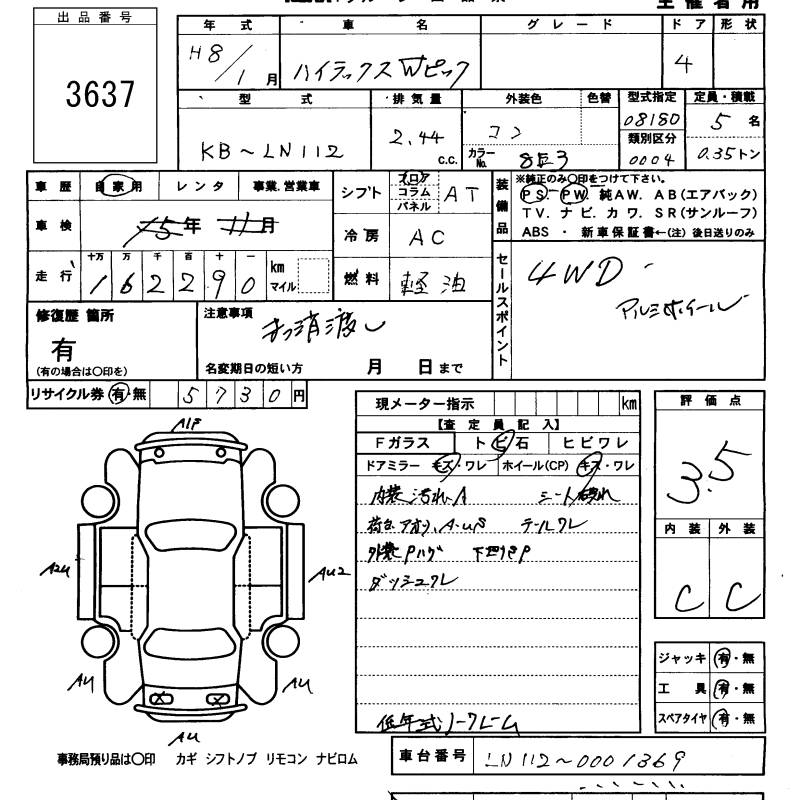 出品番号
3637
年式 車名 グレード ドア 形状
H8/1月 ハイラックスWピック 4
型式 排気量 外装色 色替 型式指定 定員・積載
KB〜LN112 2.44 c.c. コン 08180 5名
カラーNo. 8E3 類別区分 0004 0.35トン
車歴 自家用 レンタ 事業.営業車
シフト フロア コラム パネル AT
車検 15年 11月
冷房 AC
走行 十万 万 千 百 十 一 km マイル
162290
燃料 軽油
装備品 ※純正のみ〇印をつけて下さい。
PS. PW. 純AW. AB(エアバック)
TV. ナビ. カワ. SR(サンルーフ)
ABS ・ 新車保証書←(注) 後日送りのみ
セールスポイント
4WD
アルミホイール
修復歴 箇所
有
(有の場合は〇印を)
注意事項
まっ消渡し
名変期日の短い方 月 日まで
リサイクル券 有・無 5730円
現メーター指示 km
【査定員記入】
Fガラス トビ石 ヒビワレ
ドアミラー キズ・ワレ ホイール(CP) キズ・ワレ
内装汚れ、A シート破れ
テールワレ
外装Pハゲ
ダッシュワレ
低年式ノークレーム
評価点
3.5
内装 外装
C C
ジャッキ 有・無
工具 有・無
スペアタイヤ 有・無
A1P
A2U
AU2
AU
AU
AU
事務局預り品は〇印 カギ シフトノブ リモコン ナビロム
車台番号 LN112〜0001369